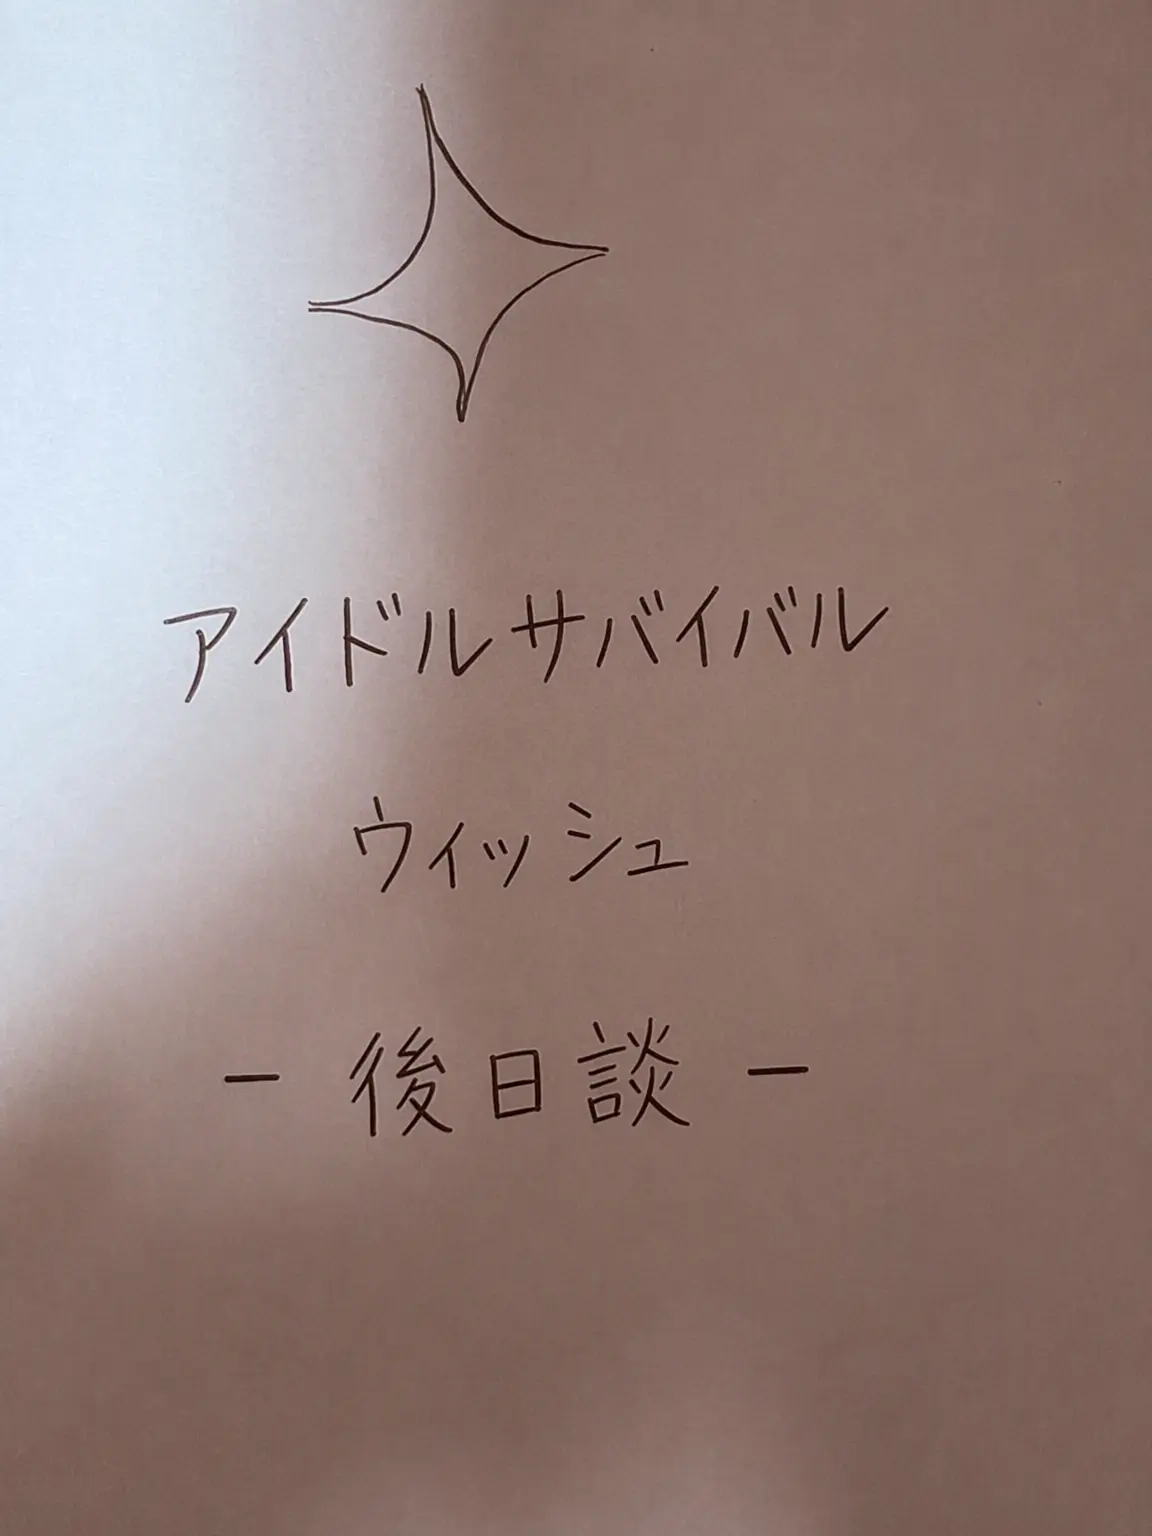 アイドルサバイバル
ウィッシュ
- 後日談 -